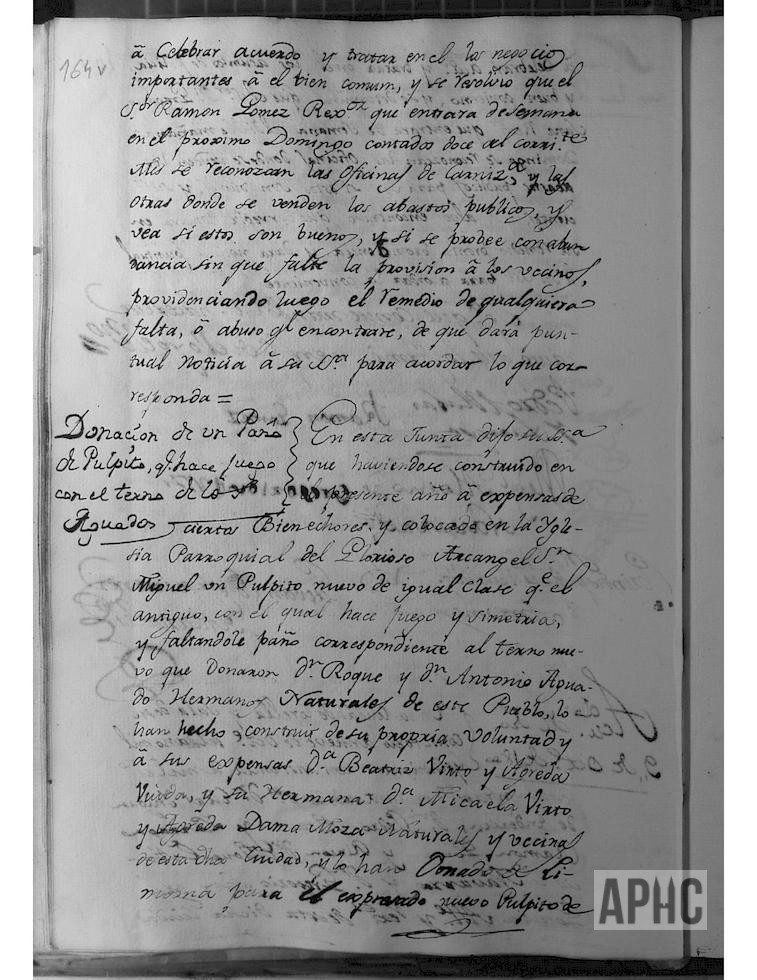 164v
ā Celebrar acuerdo y tratar en el los negocios
importantes ā el bien comun, y se resolvio que el
S.or Ramon Gomez Rex.or que entrara de semana
en el proximo Domingo contados doce del corri.te
Mes se reconozcan las oficinas de Carniz.as y las
otras donde se venden los abastos publicos, y
vea si estos son buenos, y si se probee con abun
dancia sin que falte la provision â los vecinos,
providenciando luego el remedio de qualquiera
falta, ô abuso q.e encontrare, de que dará pun-
tual noticia â su S.ra para acordar lo que cor-
responda =
Donacion de un Paño
de Pulpito, q.e hace juego
con el terno de los S.res
Aguados
En esta Junta dijo su S.a
que haviendose construido en
el presente año â expensas de
ciertos Bienechores, y colocado en la Ygle-
sia Parroquial del Glorioso Arcangel S.n
Miguel un Pulpito nuevo de igual clase q.e el
antiguo, con el qual hace juego y simetria,
y faltandole paño correspondiente al terno nue-
vo que Donaron d.n Roque y d.n Antonio Agua-
do Hermanos Naturales de este Pueblo, lo
han hecho construir de su propria voluntad y
â sus expensas d.a Beatriz Virto y Agreda
Viuda, y su Hermana d.a Micaela Virto
y Agreda Dama Moza Naturales y vecinas
de esta dha Ciudad, y lo han Donado de Li-
mosna para el expresado nuevo Pulpito de
APHC